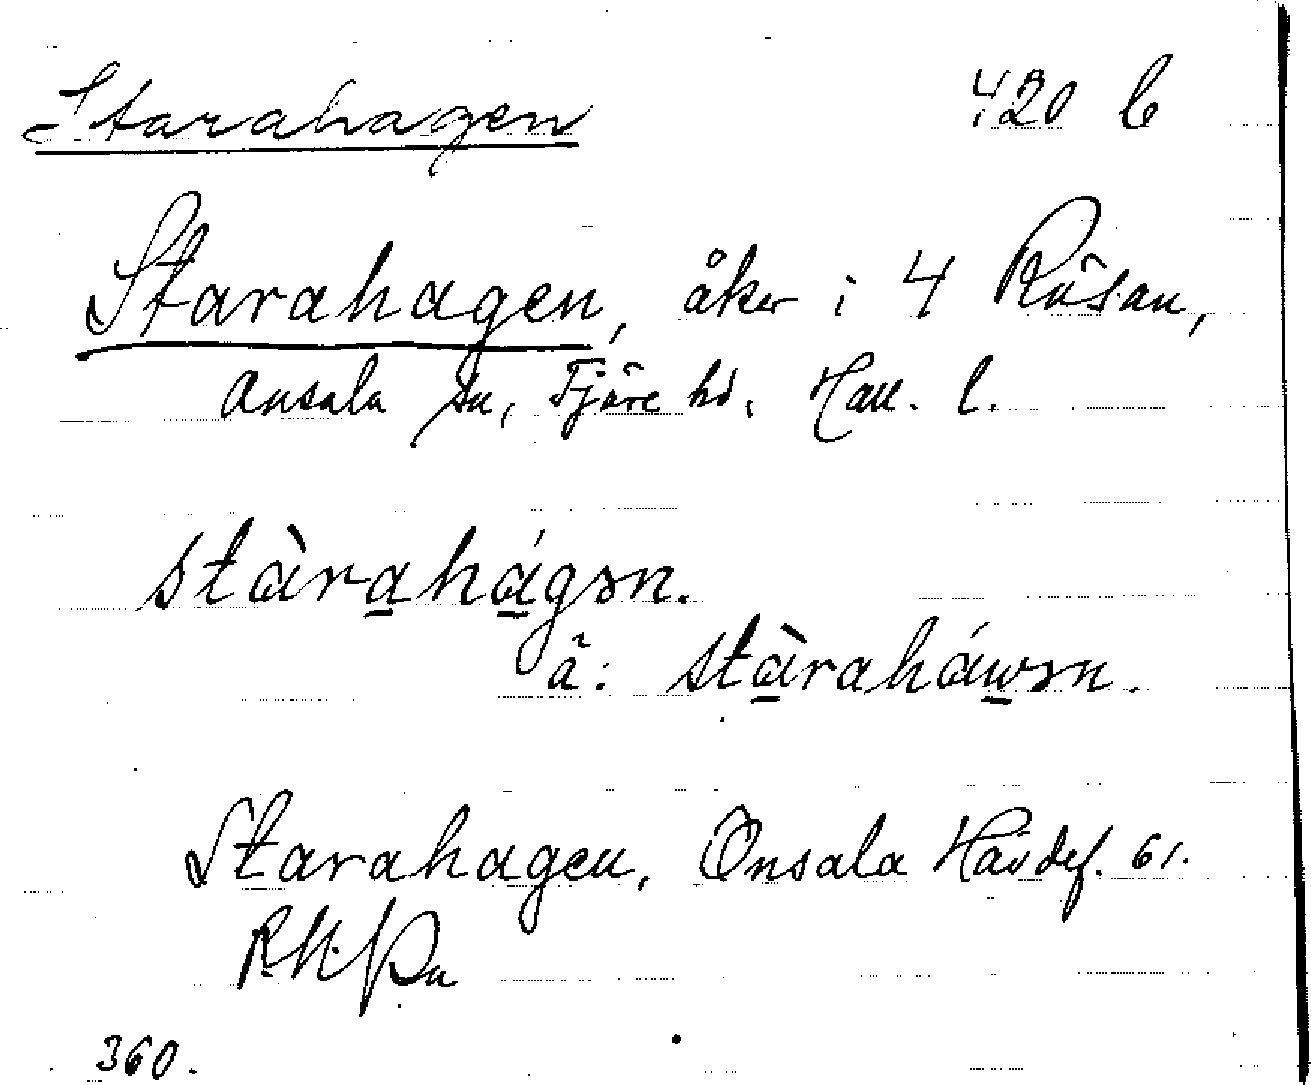 Starahagen 420 b
Starahagen, åker i 4 Rösan,
Onsala sn, Fjäre hd, Hall. l.
stàrahágən.
ä: stàraháwən.
Starahagen, Onsala Hävdef. 61.
360.